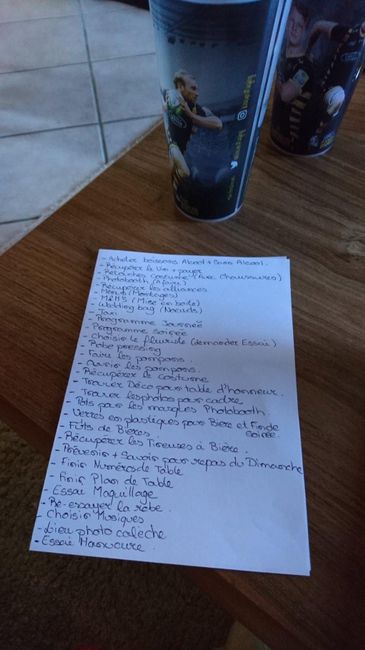 - Acheter boissons Alcool + Sans Alcool.
- Récupérer le Vin + payer
- Retouches costume (Avec Chaussures)
- Photobooth (A faire)
- Récupérer les alliances
- Menus (Montages)
- M&M'S (Mise en boite)
- Wedding bag (Noeuds)
- Taxi
- Programme Journée
- Programme soirée
- Choisir le fleuriste (demander Essai)
- Robe pressing
- Faire les pompons.
- Ouvrir les pompons.
- Récupérer le costume
- Trouver Déco pour table d'honneur.
- Trouver les photos pour cadre
- Pots pour les masques Photobooth
- Verres en plastiques pour Bière et Fin de soirée
- Fûts de Bières.
- Récupérer les Tireuses à Bière.
- Prévenir + Savoir pour repas du Dimanche
- Finir Numéros de Table
- Finir Plan de Table
- Essai Maquillage
- Ré-essayer la robe
- Choisir Musiques
- Lieu photo calèche
- Essai Manucure.